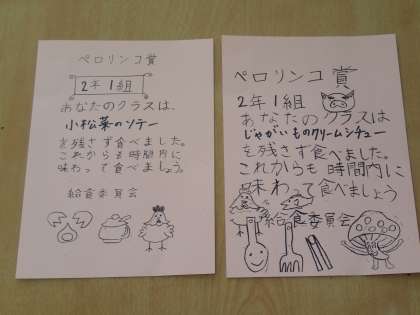 ペロリンコ賞
2年1組
あなたのクラスは、
小松菜のソテー
を残さず食べました。
これからも時間内に
味わって食べましょう。
給食委員会
ペロリンコ賞
2年1組
あなたのクラスは
じゃがいものクリームシチュー
を残さず食べました。
これからも時間内に
味わって食べましょう
給食委員会